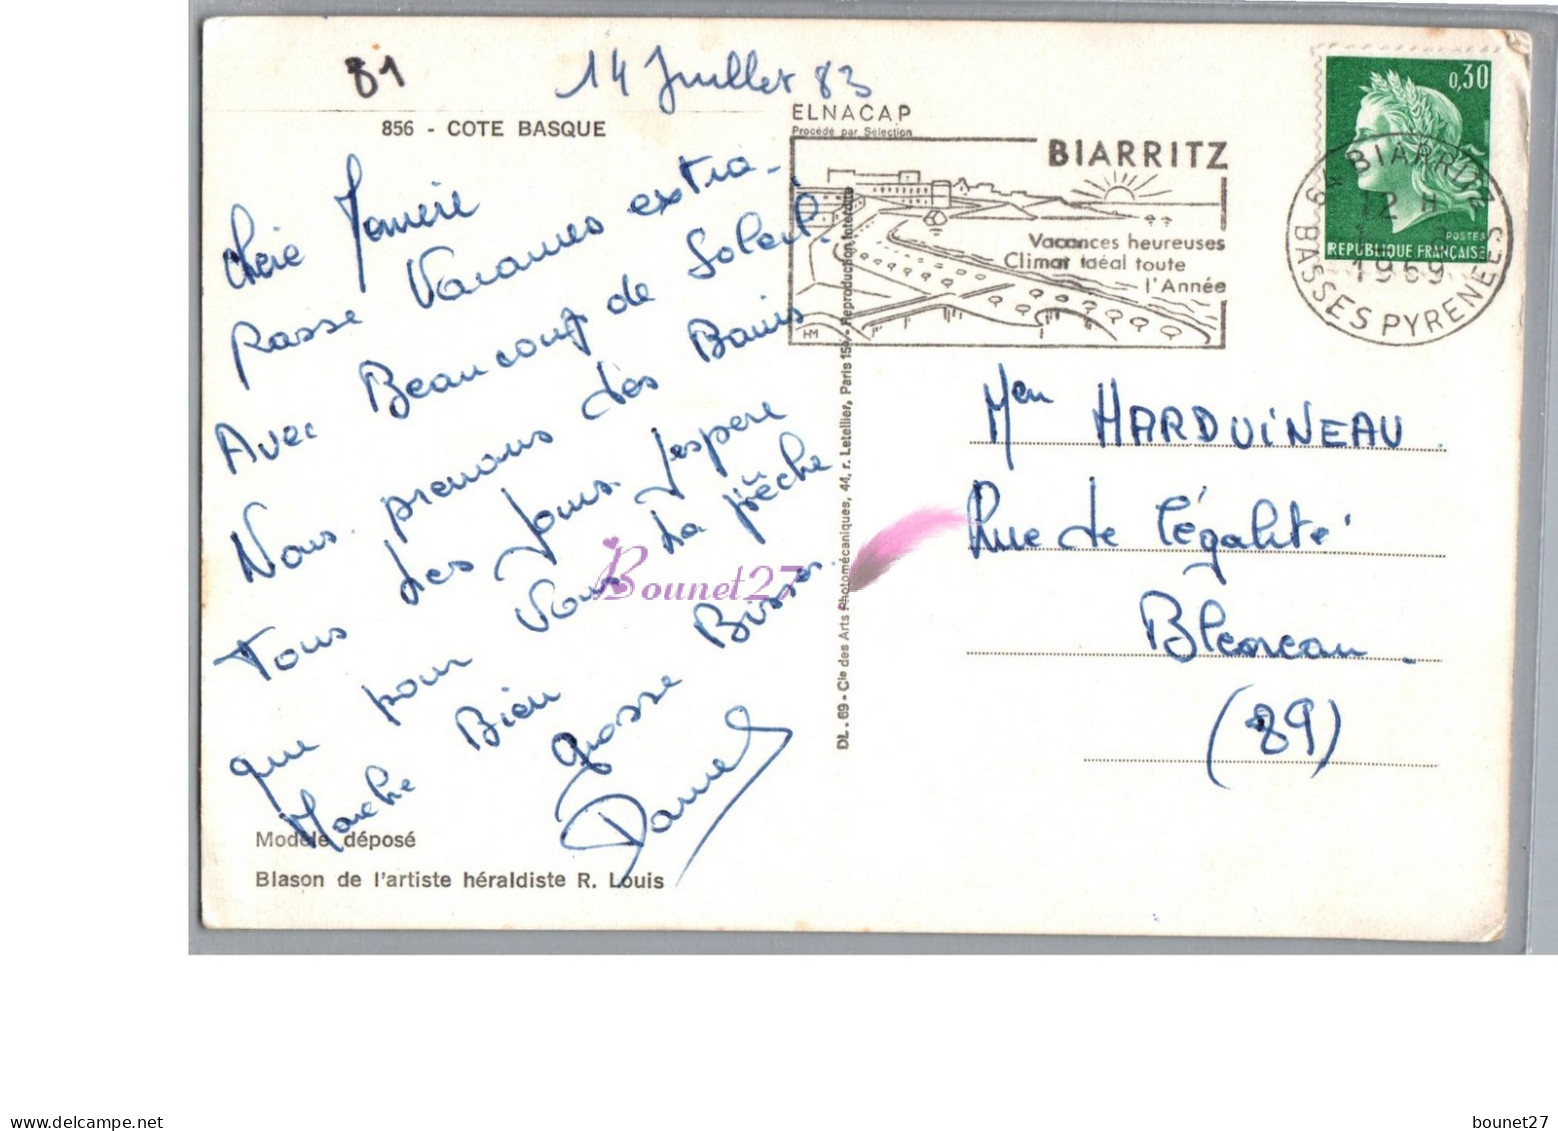 81
14 Juillet 83
856 - COTE BASQUE
Chère
passe Vacances extra-
Avec Beaucoup de Soleil.
Nous prenons des Bains
Tous les jours. J'espère
que pour Vous La pêche
Marche Bien
grosse Bisses.
Daniel
Modèle déposé
Blason de l'artiste héraldiste R. Louis
ELNACAP
Procédé par Sélection
BIARRITZ
Vacances heureuses
Climat idéal toute
l'Année
HM
0,30
POSTES
REPUBLIQUE FRANÇAISE
BIARRITZ
12 H
1969
BASSES PYRENEES
DL. 69 - Cie des Arts Photomécaniques, 44, r. Letellier, Paris 15e - Reproduction interdite
HARDUINEAU
Rue de l'égalité
Bleneau
(89)
Bounet27
delcampe.net
bounet27